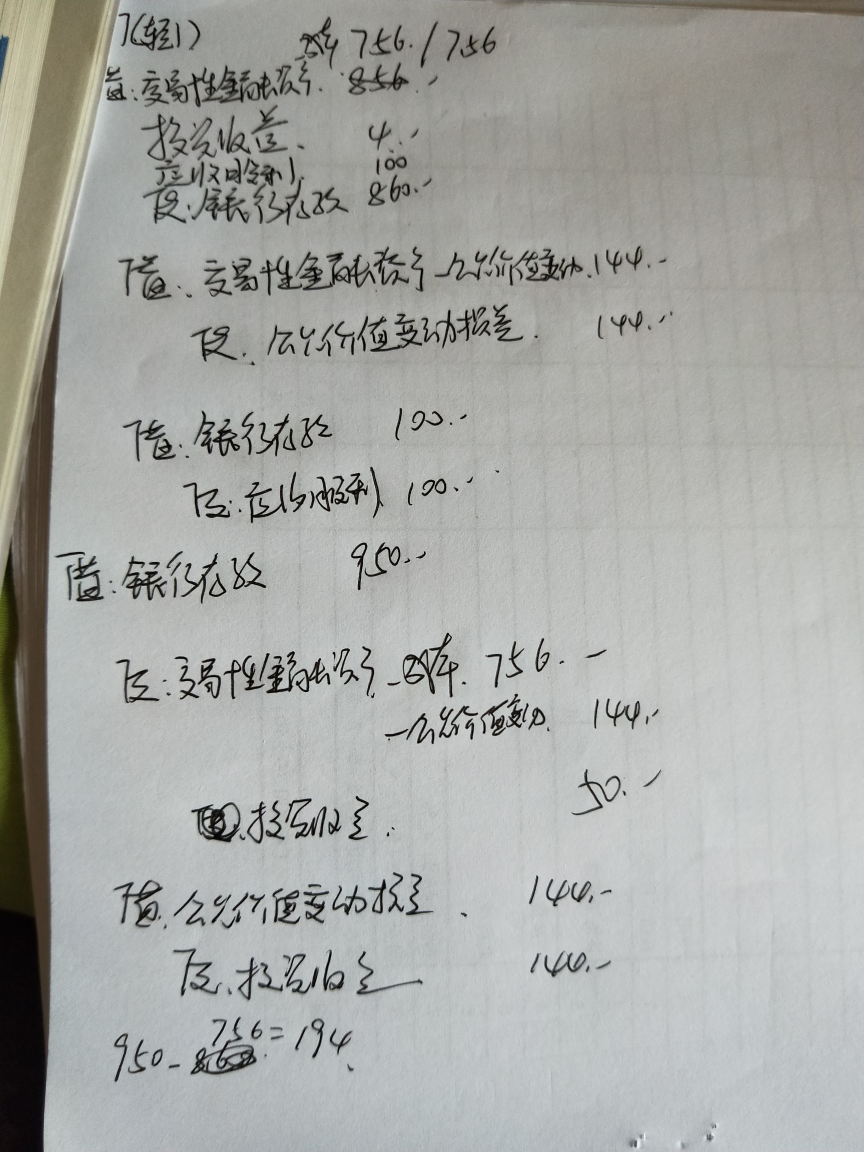 7(轻1) 成本 756. / 756
借:交易性金融资产. 856.-
投资收益. 4.-
应收股利 100
贷:银行存款 860.-
借:交易性金融资产-公允价值变动. 144.-
贷:公允价值变动损益. 144.-
借:银行存款 100.-
贷:应收股利 100.-
借:银行存款 950.-
贷:交易性金融资产-成本. 756.-
-公允价值变动. 144.-
投资收益. 50.-
借.公允价值变动损益. 144.-
贷.投资收益 144.-
950-756=194.